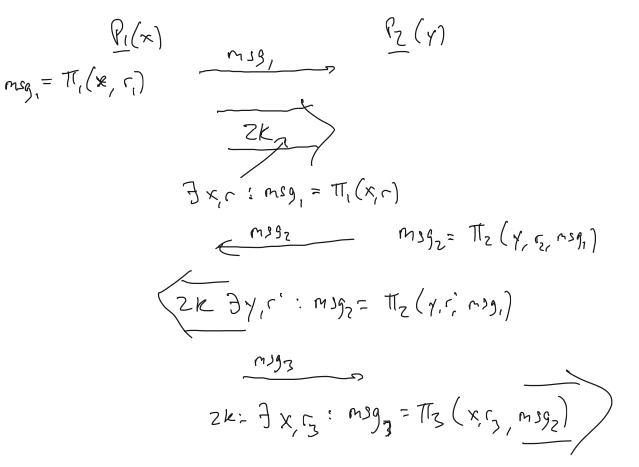 P₁(x) P₂(y)
msg₁
msg₁ = π₁(x, r₁)
ZK
∃ x,r : msg₁ = π₁(x,r)
msg₂ msg₂ = π₂(y, r₂, msg₁)
ZK ∃ y,r' : msg₂ = π₂(y,r', msg₁)
msg₃
ZK: ∃ x,r₃ : msg₃ = π₃(x,r₃, msg₂)